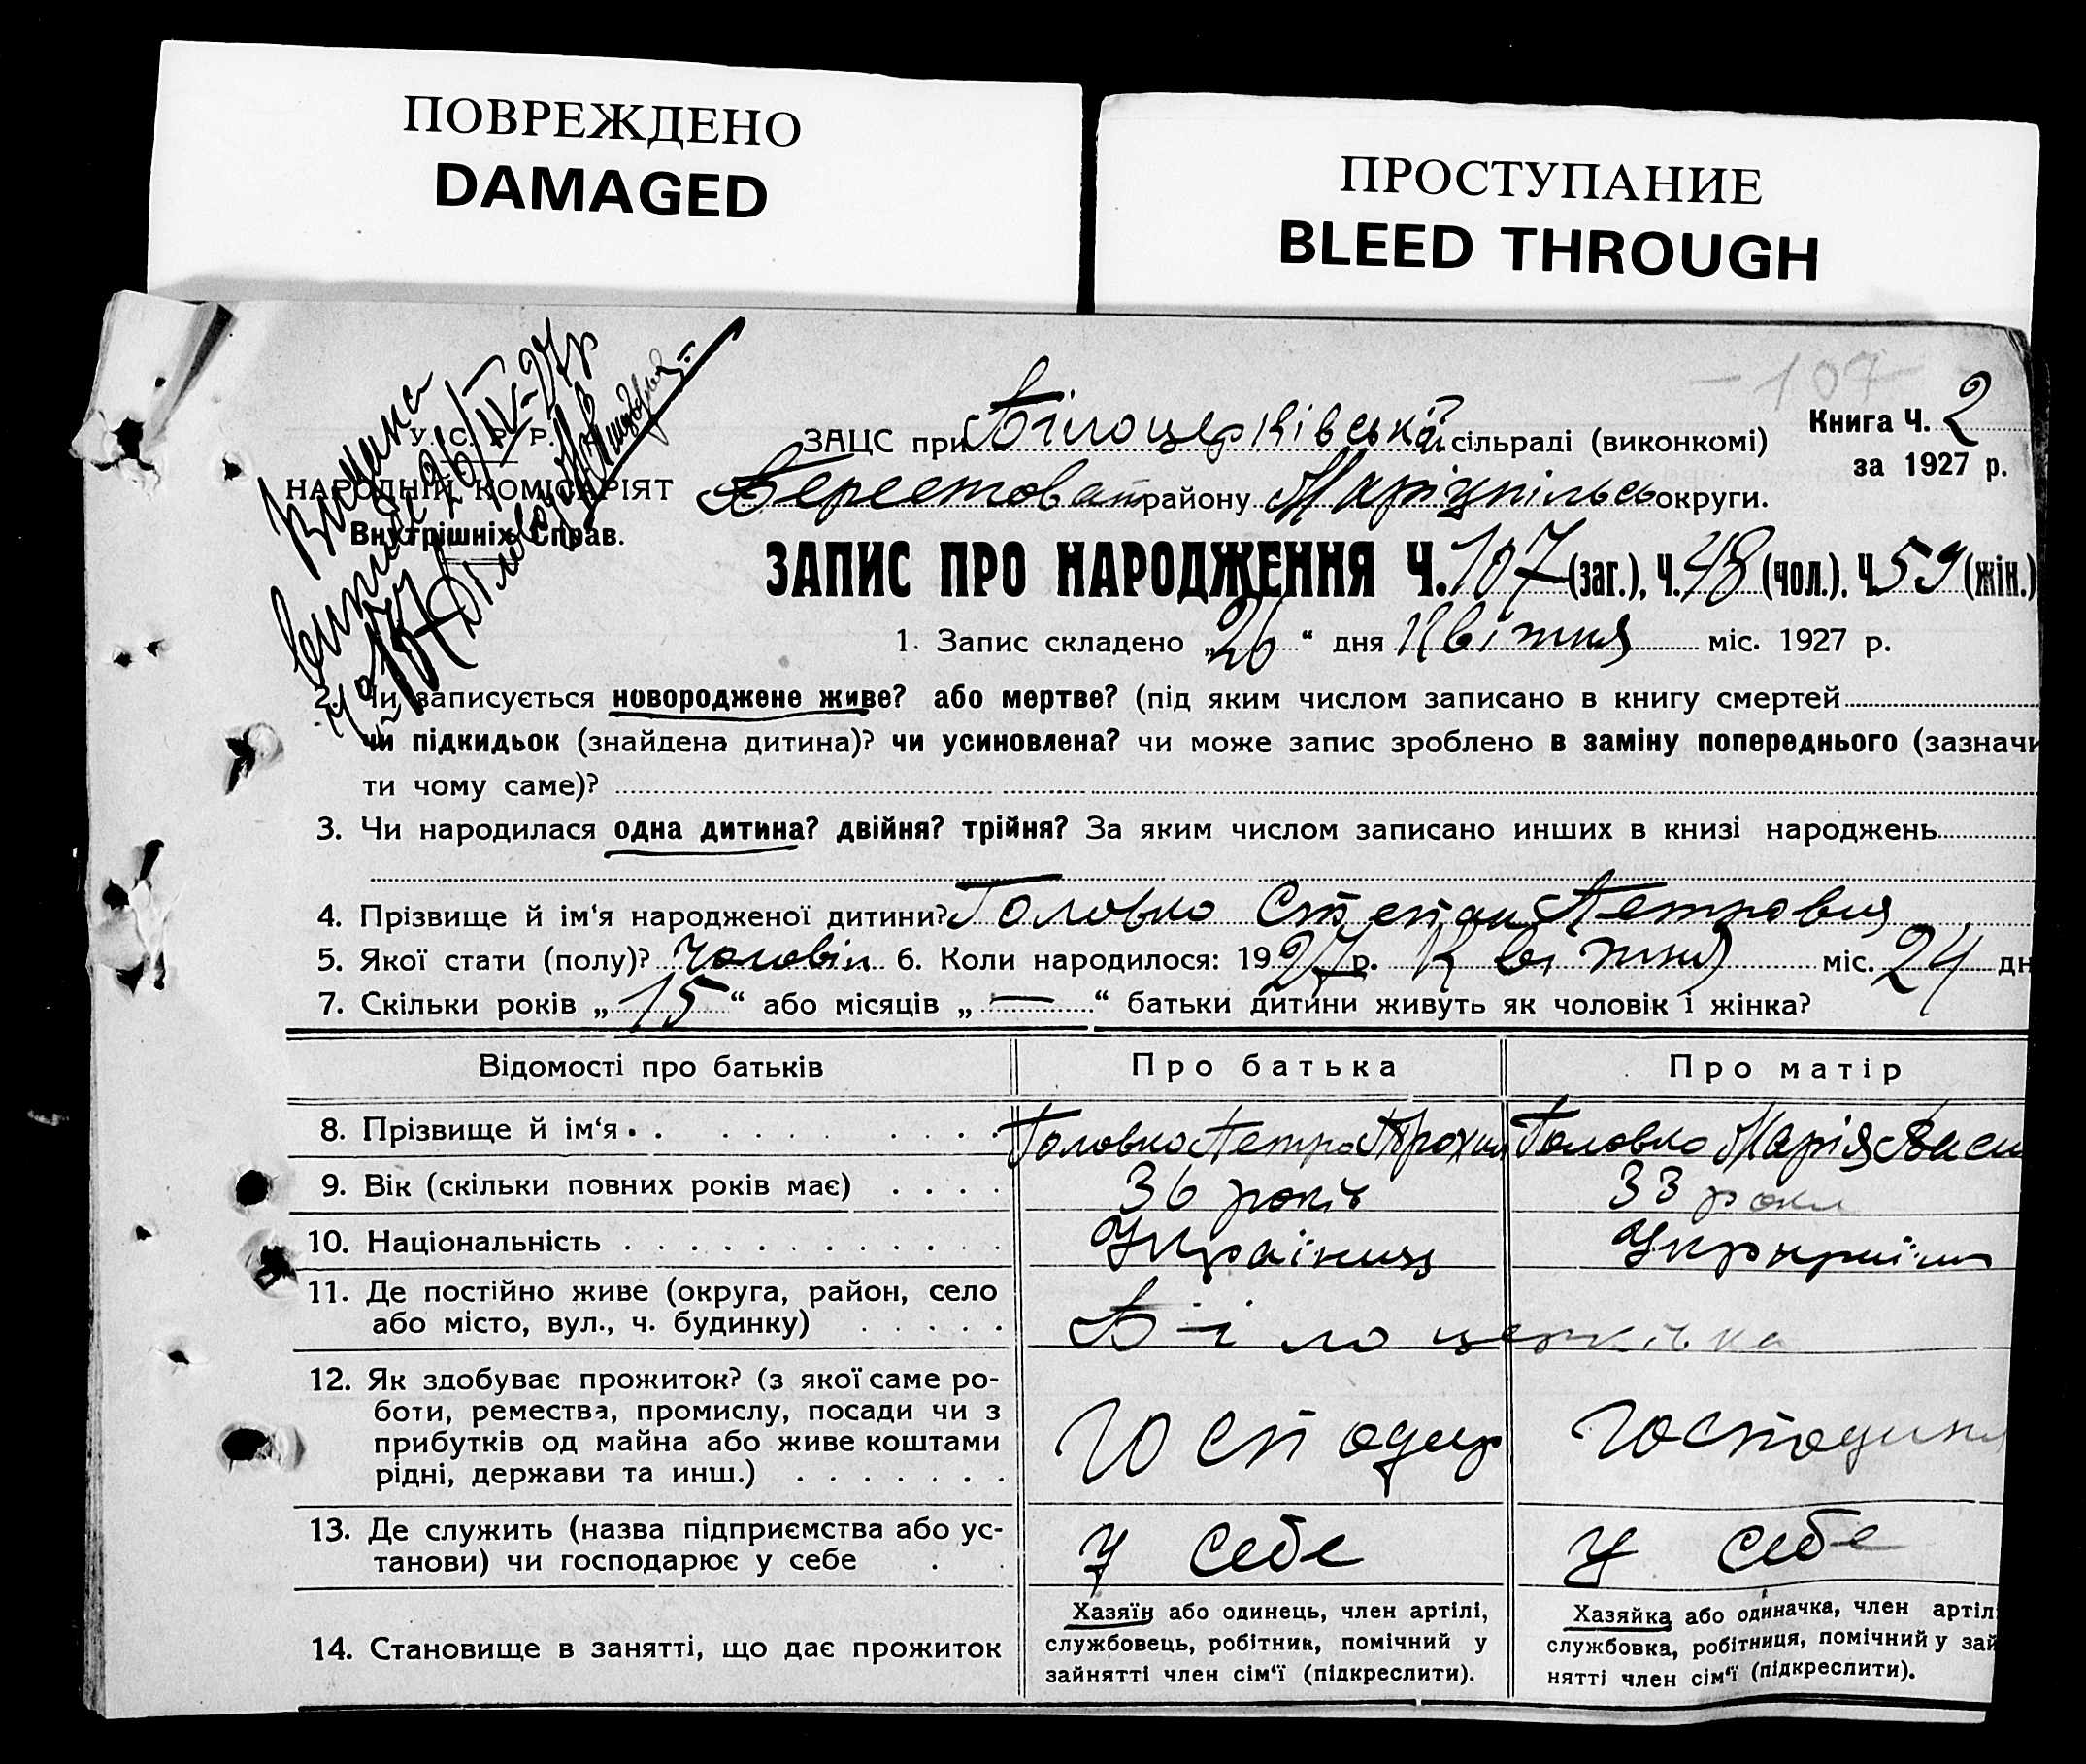 ПОВРЕЖДЕНО
DAMAGED
ПРОСТУПАНИЕ
BLEED THROUGH
- 107 -
Книга Ч. 2
за 1927 р.
У. С. Р. Р.
НАРОДНІЙ КОМІСАРІЯТ
Внутрішніх Справ.
Видана
випись 26/IV-27р
ЗАЦС при Білоцерківській сільраді (виконкомі)
Берестован району Маріупільсь округи.
ЗАПИС ПРО НАРОДЖЕННЯ Ч. 107 (заг.), Ч. 48 (чол.), Ч. 59 (жін.)
1. Запис складено „26“ дня Квітня міс. 1927 р.
2. Чи записується новороджене живе? або мертве? (під яким числом записано в книгу смертей
чи підкидьок (знайдена дитина)? чи усиновлена? чи може запис зроблено в заміну попереднього (зазначи
ти чому саме)?
3. Чи народилася одна дитина? двійня? трійня? За яким числом записано инших в книзі народжень
4. Прізвище й ім‘я народженої дитини? Головко Степан Петрович
5. Якої стати (полу)? чоловік 6. Коли народилося: 1927 р. Квітня міс. 24 дн
7. Скільки років „15“ або місяців „—“ батьки дитини живуть як чоловік і жінка?
Відомості про батьків Про батька Про матір
8. Прізвище й ім‘я Головко Петро Прохил Головко Марія Васи
9. Вік (скільки повних років має) 36 років 33 роки
10. Національність Українць
11. Де постійно живе (округа, район, село
або місто, вул., ч. будинку) Білоцерківка
12. Як здобуває прожиток? (з якої саме ро-
боти, ремества, промислу, посади чи з
прибутків од майна або живе коштами
рідні, держави та инш.)
господар господиня
13. Де служить (назва підприємства або ус-
танови) чи господарює у себе
у себе у себе
14. Становище в занятті, що дає прожиток
Хазяїн або одинець, член артілі,
службовець, робітник, помічний у
зайнятті член сім‘ї (підкреслити).
Хазяйка або одиначка, член артіл
службовка, робітниця, помічний у зай
нятті член сім‘ї (підкреслити).